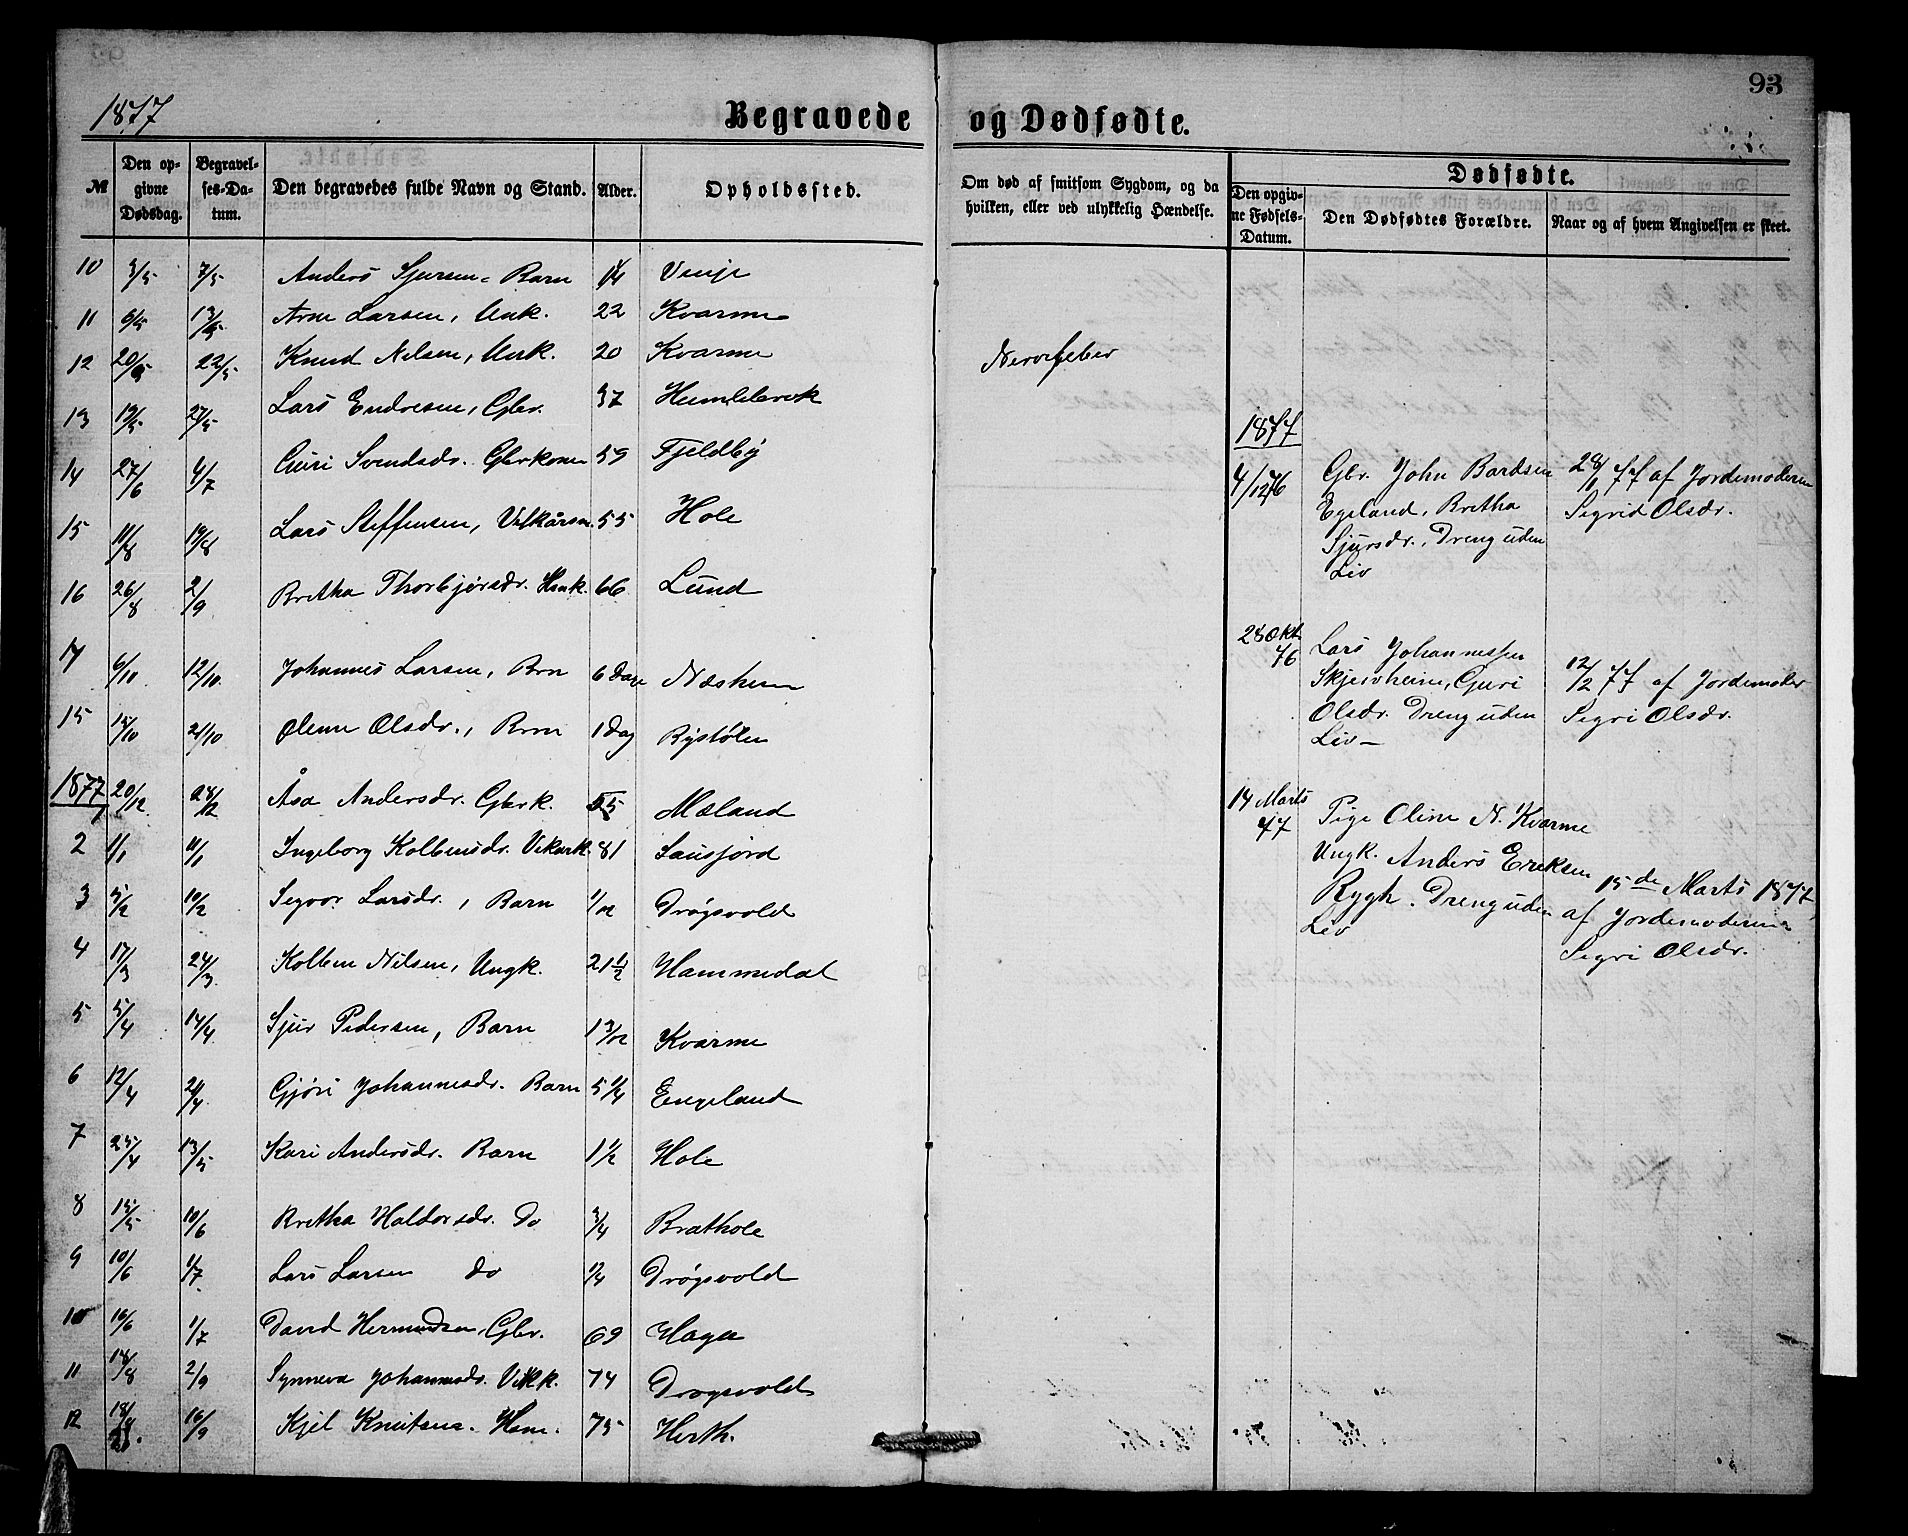 93
1877
Begravede og Dødfødte.
№ Den opgivne Dødsdag. Begravelses-Datum. Den begravedes fulde Navn og Stand. Alder. Opholdssted. Om død af smitsom Sygdom, og da hvilken, eller ved ulykkelig Hændelse. Dødfødte.
Den opgivne Fødsels-Datum. Den Dødfødtes Forældre. Naar og af hvem Angivelsen er skeet.
10 3/5 7/5 Anders Sjursen - Barn 1/4 Vinje
11 6/5 13/5 Arne Larsen, Unk. 22 Kvarme
12 20/5 22/5 Knud Nilsen, Unk. 20 Kvarme Nervefeber
13 19/5 27/5 Lars Endresen, Gbr. 37 Humlebrek
14 27/6 4/7 Guri Svendsdr. Gbrkone 59 Fjeldby
15 11/8 19/8 Lars Steffensen, Vilkårsm. 55 Hole
16 26/8 2/9 Britha Thorbjørsdr. Husk. 66 Lund
17 6/10 12/10 Johannes Larsen, Brn 6 Dage Næsheim
15 15/10 21/10 Oline Olsdr., Brn 1 Dag Rystølen
1877
1 20/12 28/12 Åsa Andersdr. Gbrk. 55 Mæland
2 1/1 11/1 Ingeborg Kolbensdr. Vikark. 81 Sausjord
3 5/2 10/2 Segvor Larsdr., Barn 1/12 Drøgsvold
4 17/3 24/3 Kolben Nilsen, Ungk. 21 1/2 Hammedal
5 5/4 14/4 Sjur Pedersen, Barn 1 3/12 Kvarme
6 12/4 21/4 Gjøri Johannesdr. Barn 5 1/4 Engeland
7 25/4 13/5 Kari Andersdr. Barn 1 1/2 Hole
8 15/5 10/6 Britha Haldorsdr. Do 3/4 Brathole
9 10/6 1/7 Lars Larsen do 1/4 Drøgsvold
10 16/6 1/7 David Hermundsen, Gbr. 69 Haga
11 14/8 2/9 Synneva Johannesdr. Vilkk. 74 Drøgsvold
12 18/8 16/9 Kjel Knutsen. Hsm. 75 Herth.
1877
4/12 76 Gbr. John Bardsen
Egeland, Britha
Sjursdr., Dreng uden
Liv
28/1 77 af Jordemoderen
Segrid Olsdr.
28 Okt. 76 Lars Johannessen
Skjervheim, Guri
Olsdr. Dreng uden
Liv -
12/2 77 af Jordemoder
Segri Olsdr.
14 Marts 77 Pige Oline N. Kvarme
Ungk. Anders Eriksen
Rygh. Dreng uden
Liv
15de Marts 1877,
af Jordemoderen
Segri Olsdr.